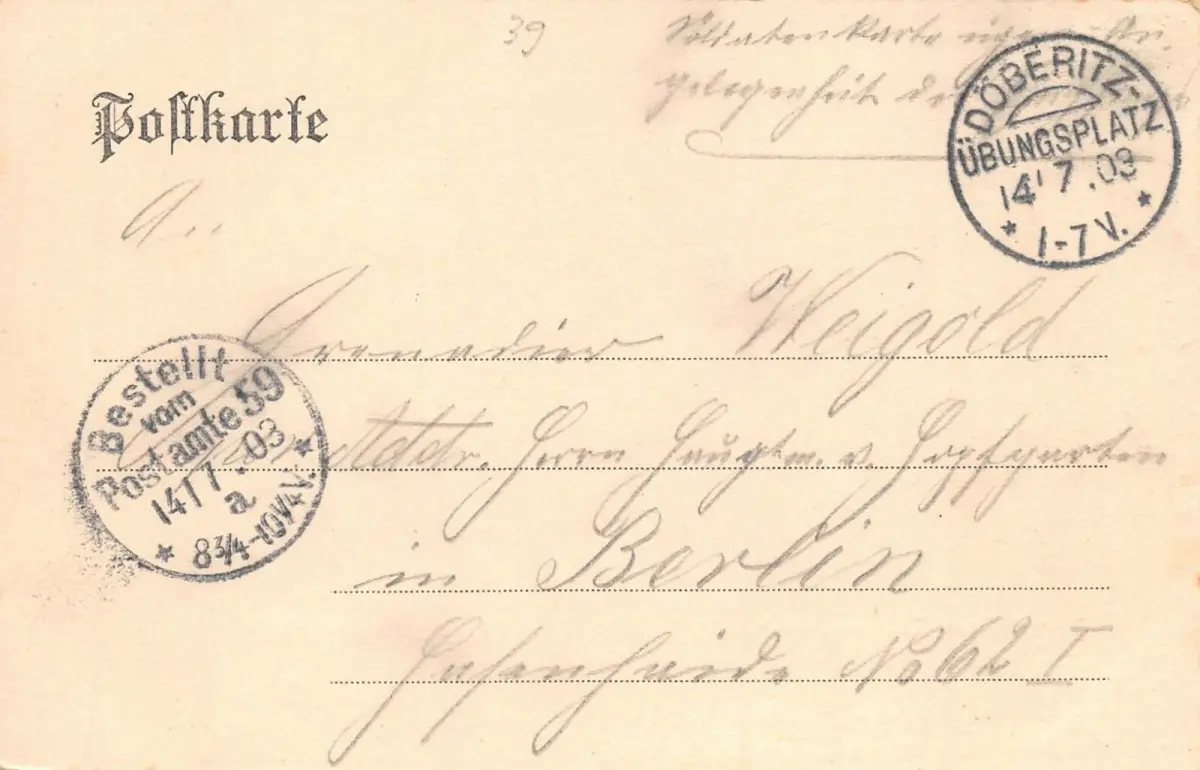 39
Soldatenkarte eigene An-
gelegenheit des
Postkarte
DÖBERITZ-
ÜBUNGSPLATZ
14 7 .03
* 1-7 V. *
An
Grenadier Weigold
Herrn Hauptm. v. Hopfgarten
in Berlin
Hasenheide No 62 I
Bestellt
vom
Postamte 59
14/7.03
a
* 8¾-10¼V. *